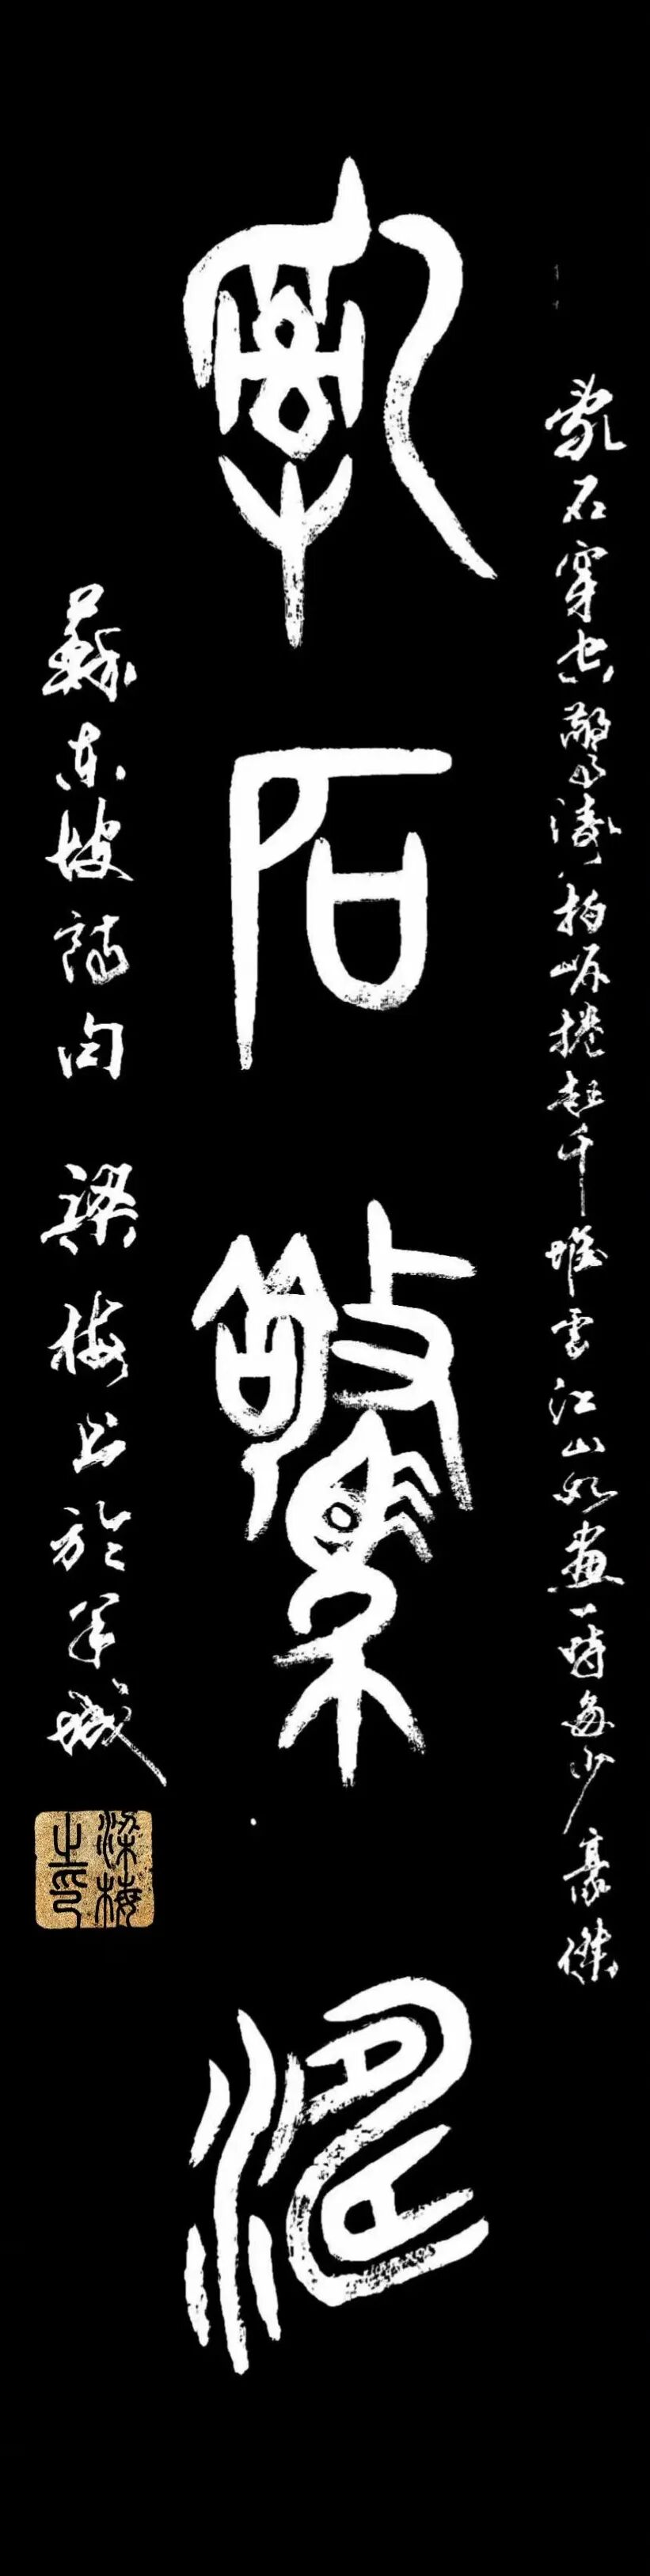 亂石驚濤
亂石穿空驚濤拍岸捲起千堆雪江山如畫一時多少豪傑
蘇東坡詩句 梁梅書於羊城
梁梅之印